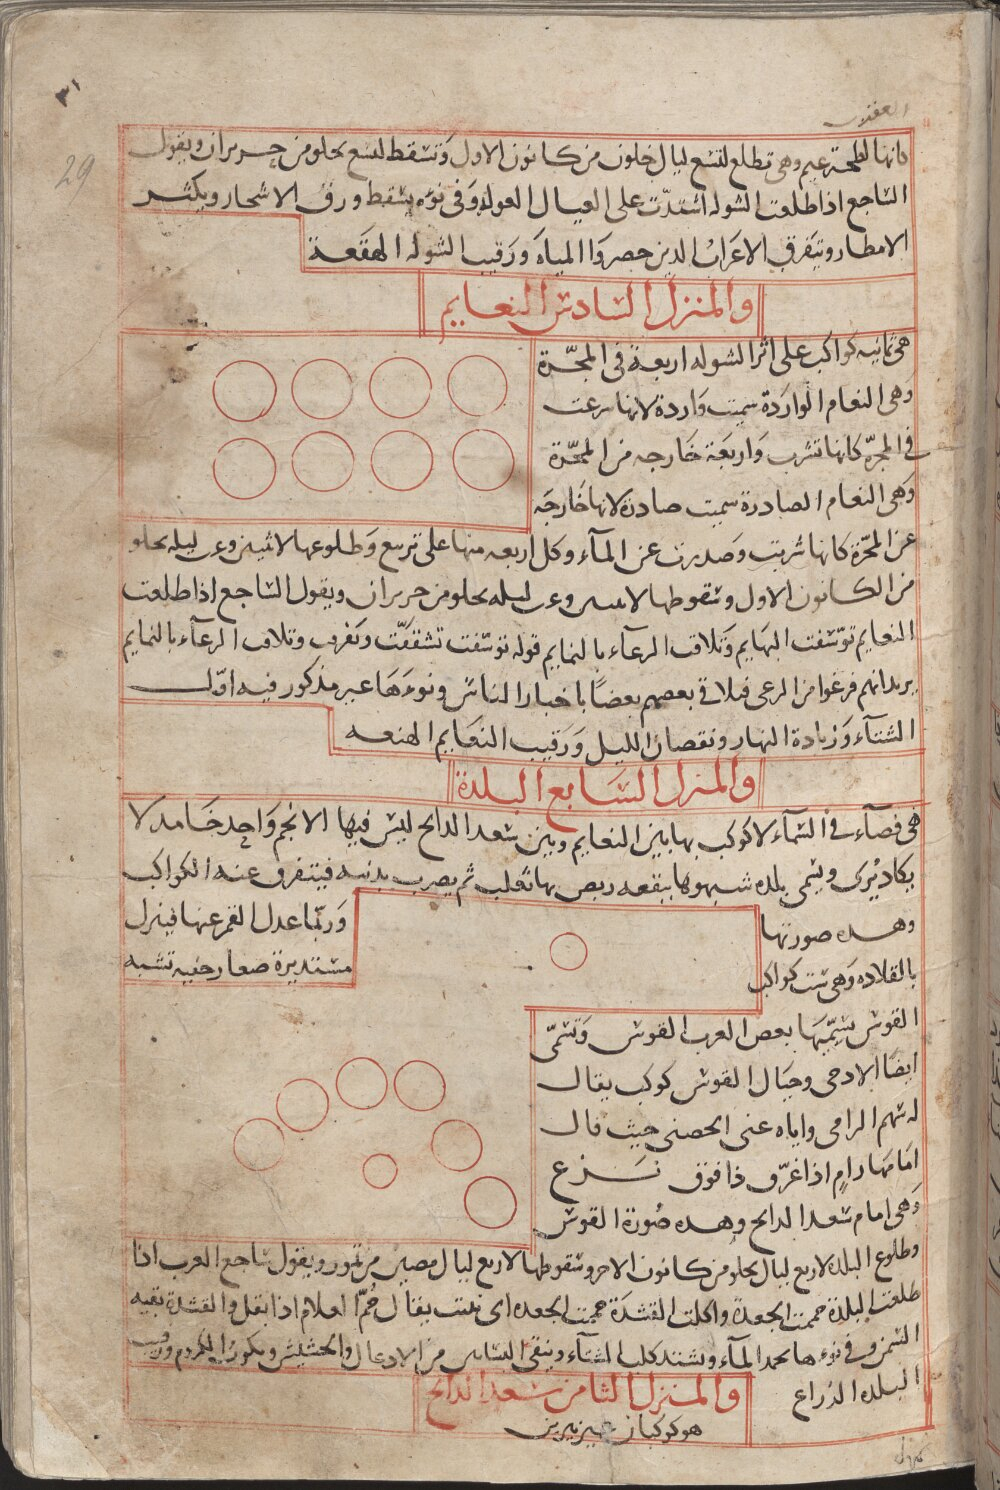 ٣١
29
العقرب
فانها لطخة غيم وهي تطلع لتسع ليال خلون من كانون الاول وتسقط لتسع يخلو من حزيران ويقول
الساجع اذا طلعت الشوله اشتدّت على العيال العوله وفي نوّه يسقط ورق الاشجار ويكثر
الامطار ويتفرق الاعراب الذين حصروا المياه ورقيب الشوله الهقعة
والمنزل السادس النعايم
هي ثمانيه كواكب على اثر الشوله اربعة في المجرّة
وهي النعام الواردة سميت واردة لانها شرعت
في المجرّه كانها تشرب واربعة خارجه من المجرّة
وهي النعام الصادرة سميت صادرة لانها خارجه
عن المجرّة كانها شربت وصدرت عن المآء وكل اربعه منها على تربيع وطلوعها لاثنين وعـ ليله يخلو
من الكانون الاول وسقوطها لاثنين وعـ ليله يخلو من حزيران ويقول الساجع اذا طلعت
النعايم توسّفت البهايم وتلاقت الرعآء بالنمايم قوله توسّفت تشققّت وتلاقت الرعآء بالنمايم
يريد انهم فرغوا من الرعي فيلاقي بعضهم بعضًا باخبار الناس ونوءها غير مذكور فيه اوّل
الشتآء وزيادة النهار ونقصان الليل ورقيب النعايم الهنعه
والمنزل السابع البلدة
هي فضآء في السمآء لا كوكب بها بين النعايم وبين سعد الذابح ليس فيها الا نجم واحد خامد لا
يكاد يُرى ويسمى بلده شبهوها ببقعه ربض بها ثعلب ثم يضرب بذنبه فيتفرق عنه الكواكب
وهـذه صورتها
ورّبما عدل القمر عنها فينزل
بالقلاده وهي ست كواكب
مستديرة صغار خفيه تشبه
القوس يسمّيها بعض العرب القوس وتسمّى
ايضًا الادحي وحيال القوس كوكب يقال
له سهم الرامي واياه عني الحصني حيث قال
امامها رامٍ اذا غرّق ذا فوق نـزع
وهي امام سعد الذابح وهـذه صورة القوس
وطلوع البلدة لاربع ليال يخلو من كانون الاخر وسقوطها لاربع ليال مضين من تموز ويقول ساجع العرب اذا
طلعت البلدة حممت الجعدة واكلت القشدة حممت الجعده اى نبتت يقال حُمّم الغلام اذا بقل والقشدة بقيه
السمن وفي نوءها يجمد المآء ويشتد كلب الشتآء وينقى البساتين من الادغال والحشيش ويكون الكروم ورقيب
البلده الذراع
والمنزل الثامن سعد الذابح
هو كوكبان غير نيرين